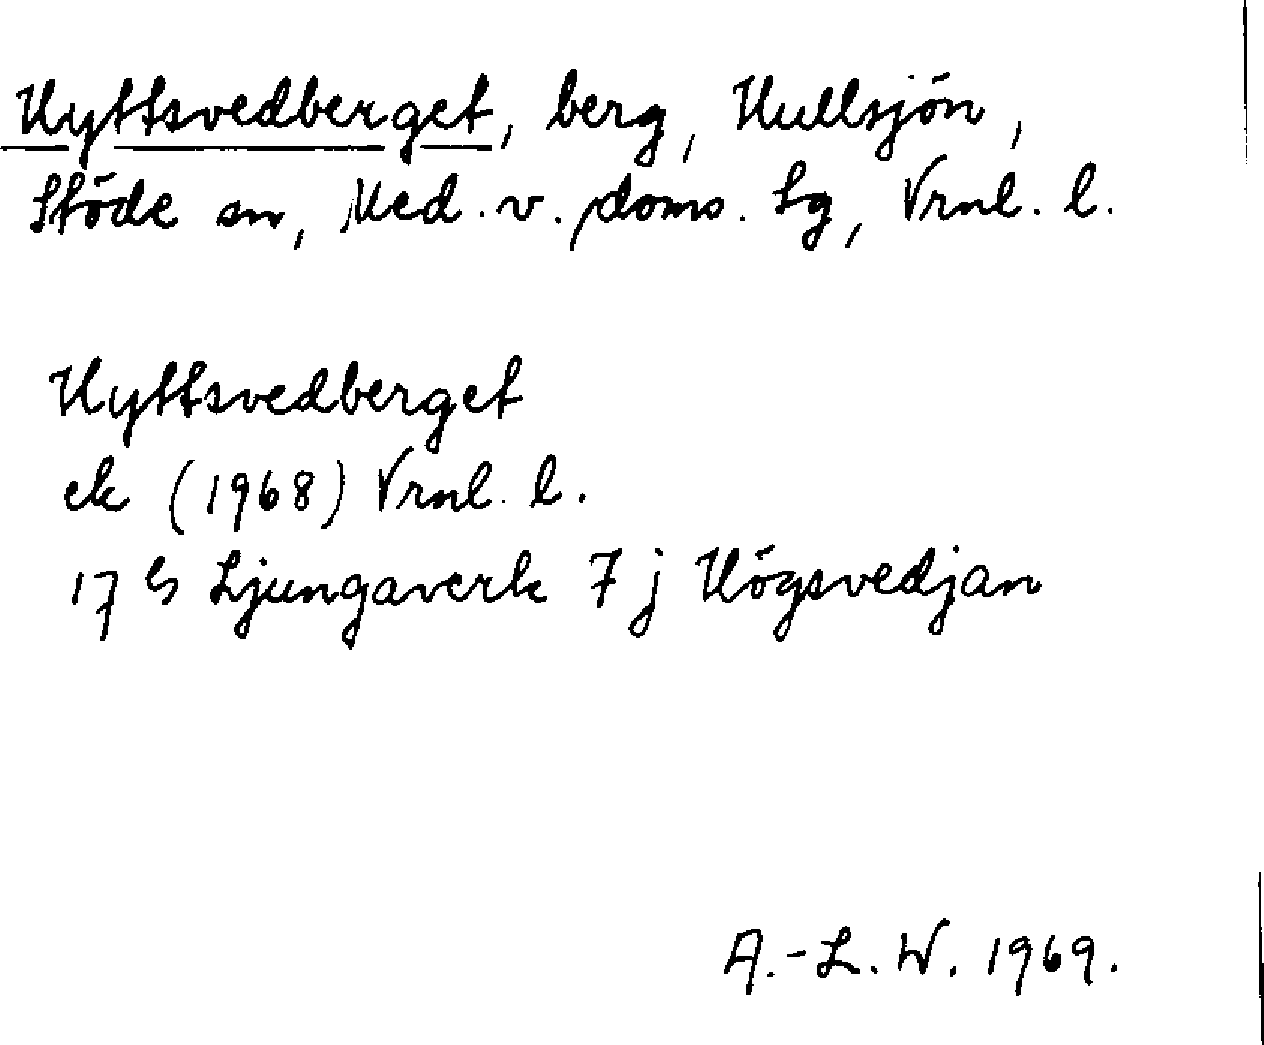 Hyttsvedberget, berg, Hullsjön,
Stöde sn, Med. v. doms. lg, Vrnl. l.
Hyttsvedberget
ek (1968) Vrnl. l.
17 G Ljungaverk 7 j Högsvedjan
A.-L. W. 1969.